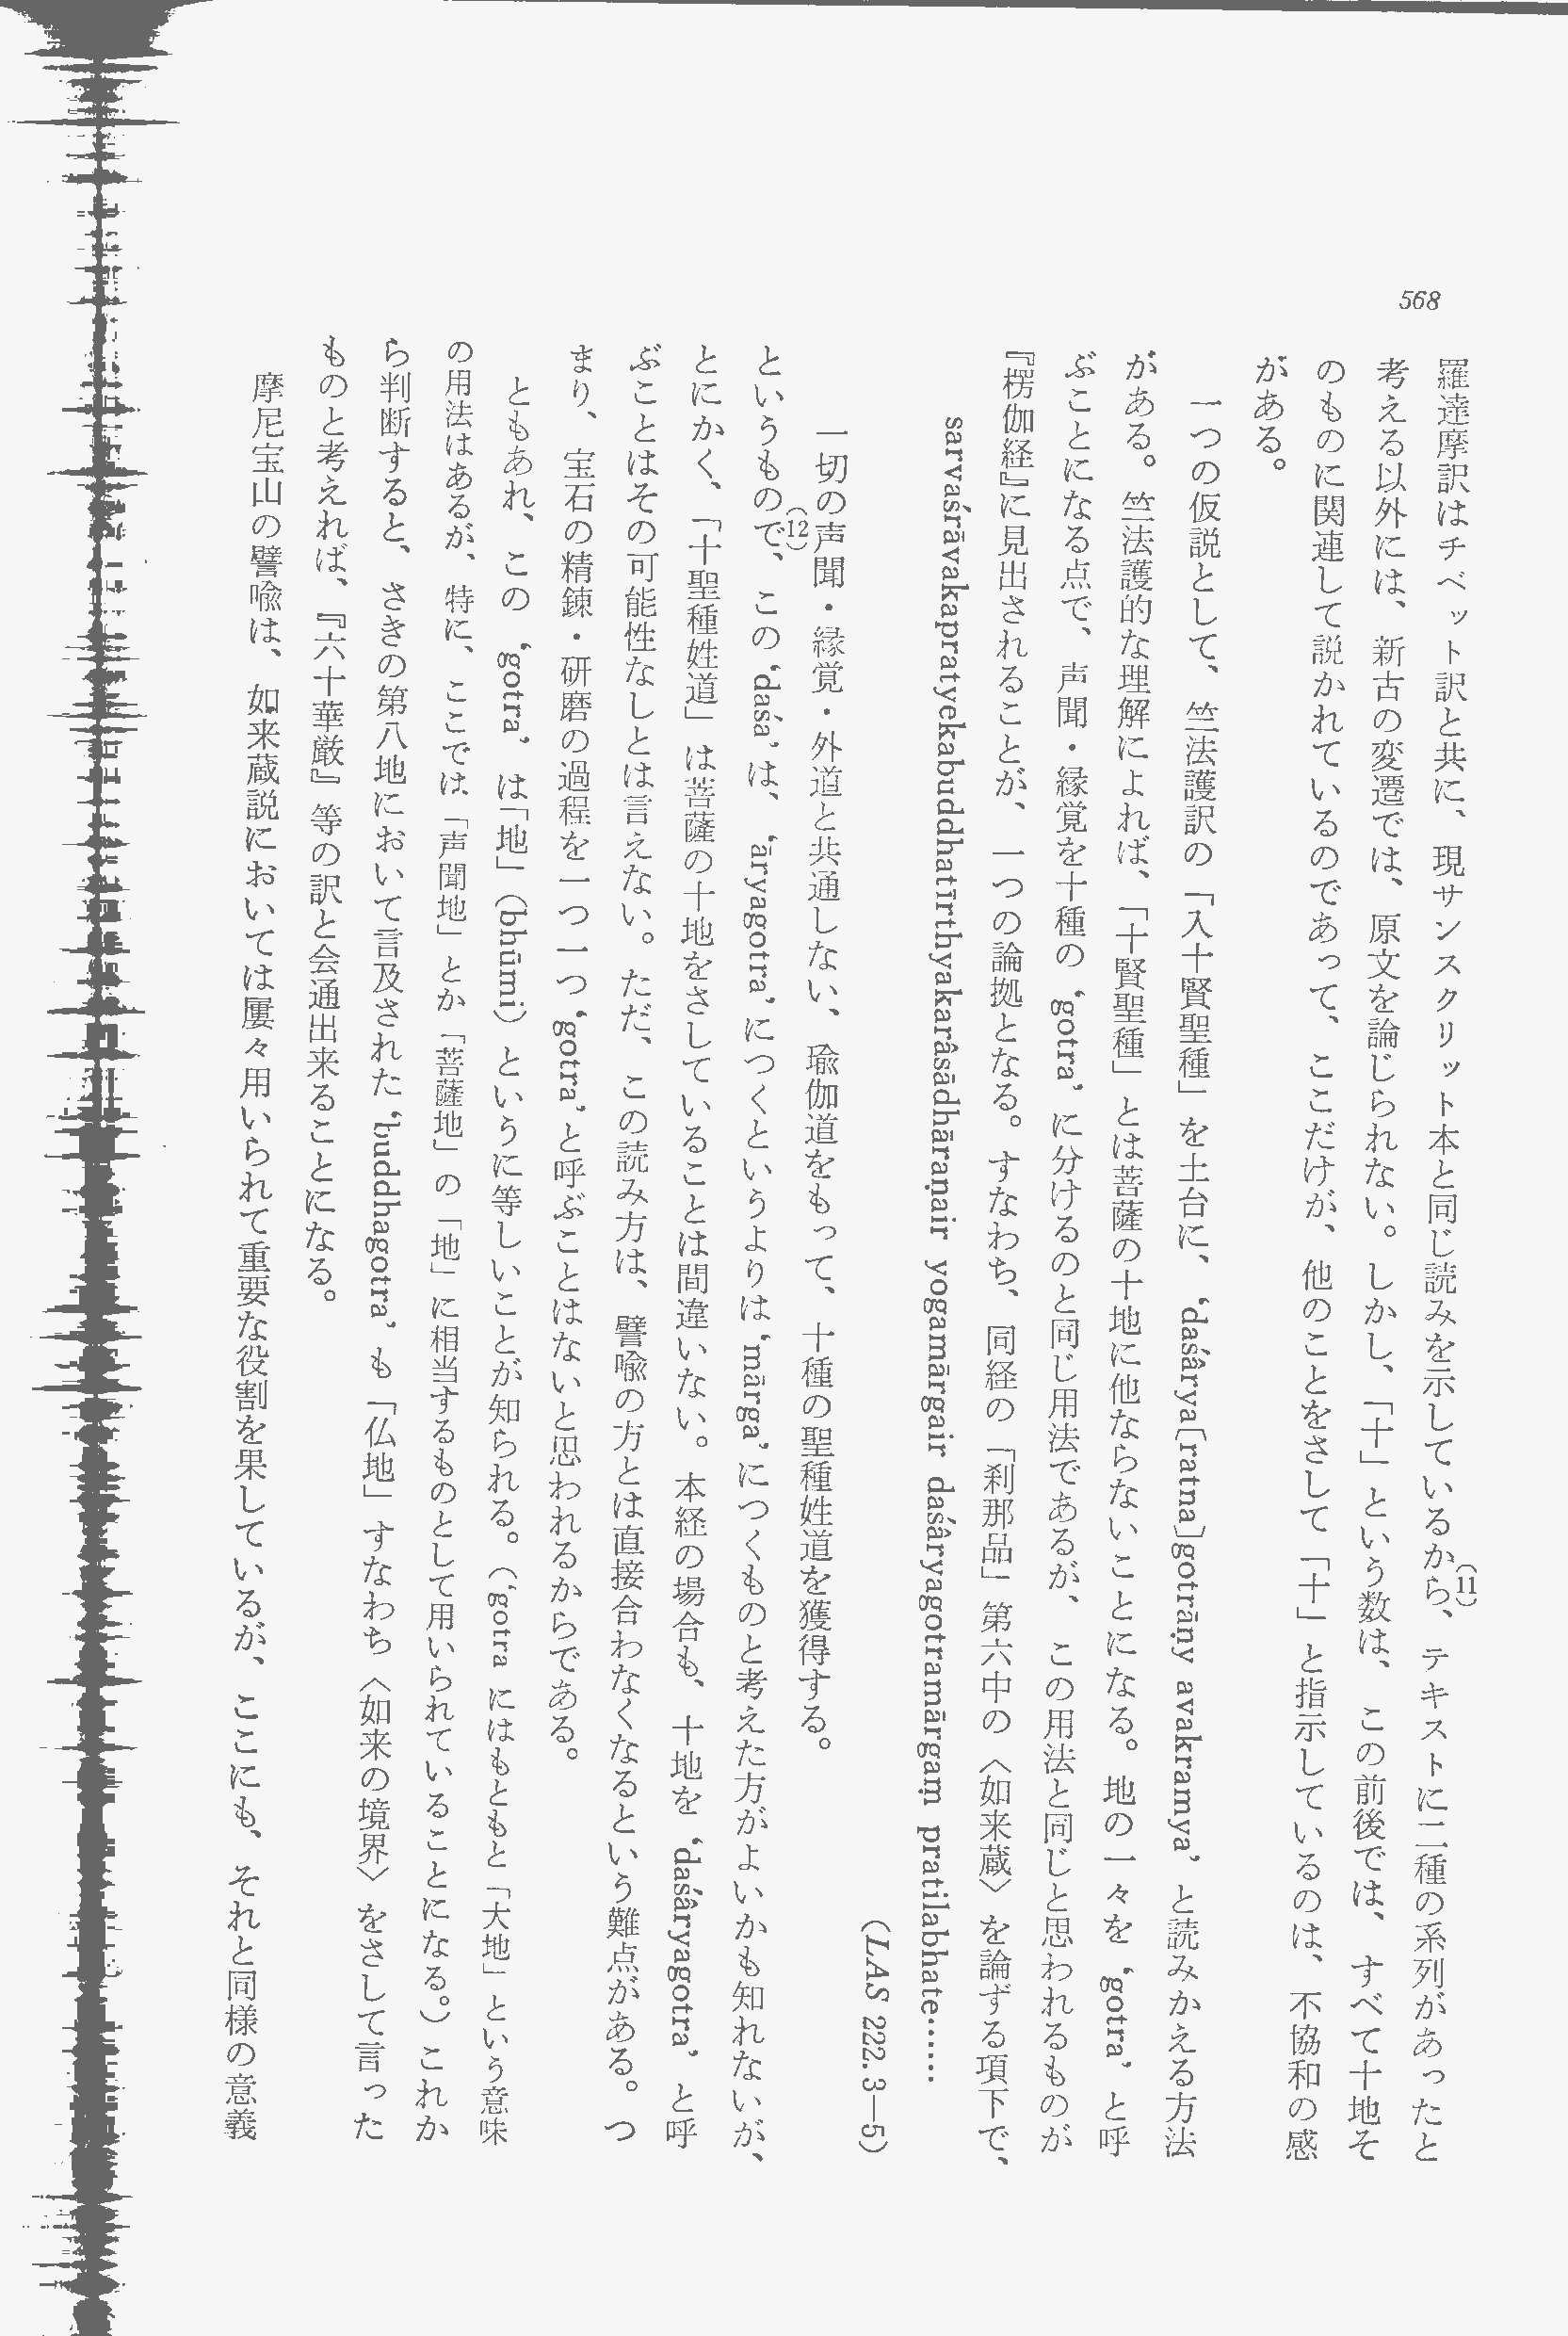 568
羅達摩訳はチベット訳と共に、現サンスクリット本と同じ読みを示しているから、(11)テキストに二種の系列があったと
考える以外には、新古の変遷では、原文を論じられない。しかし、「十」という数は、この前後では、すべて十地そ
のものに関連して説かれているのであって、ここだけが、他のことをさして「十」と指示しているのは、不協和の感
がある。
一つの仮説として、竺法護訳の「入十賢聖種」を土台に、‘daśârya[ratna]gotrāṇy avakramya’ と読みかえる方法
がある。竺法護的な理解によれば、「十賢聖種」とは菩薩の十地に他ならないことになる。地の一々を ‘gotra’ と呼
ぶことになる点で、声聞・縁覚を十種の ‘gotra’ に分けるのと同じ用法であるが、この用法と同じと思われるものが
『楞伽経』に見出されることが、一つの論拠となる。すなわち、同経の「刹那品」第六中の〈如来蔵〉を論ずる項下で、
sarvaśrāvakapratyekabuddhatīrthyakarâsādhāraṇair yogamārgair daśâryagotramārgaṃ pratilabhate……
(LAS 222. 3—5)
一切の声聞・縁覚・外道と共通しない、瑜伽道をもって、十種の聖種姓道を獲得する。
というもので、(12)この ‘daśa’ は、‘āryagotra’ につくというよりは ‘mārga’ につくものと考えた方がよいかも知れないが、
とにかく、「十聖種姓道」は菩薩の十地をさしていることは間違いない。本経の場合も、十地を ‘daśâryagotra’ と呼
ぶことはその可能性なしとは言えない。ただ、この読み方は、譬喩の方とは直接合わなくなるという難点がある。つ
まり、宝石の精錬・研磨の過程を一つ一つ ‘gotra’ と呼ぶことはないと思われるからである。
ともあれ、この ‘gotra’ は「地」(bhūmi) というに等しいことが知られる。(‘gotra にはもともと「大地」という意味
の用法はあるが、特に、ここでは「声聞地」とか「菩薩地」の「地」に相当するものとして用いられていることになる。)これか
ら判断すると、さきの第八地において言及された ‘buddhagotra’ も「仏地」すなわち〈如来の境界〉をさして言った
ものと考えれば、『六十華厳』等の訳と会通出来ることになる。
摩尼宝山の譬喩は、如来蔵説においては屢々用いられて重要な役割を果しているが、ここにも、それと同様の意義